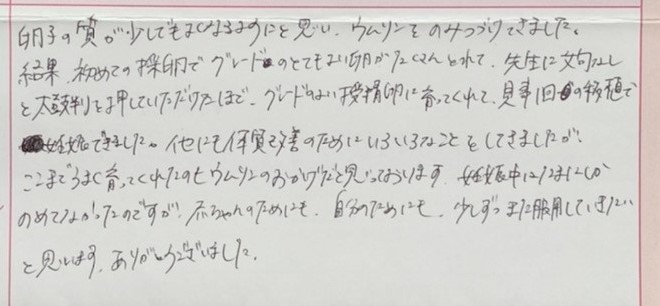 卵子の質が少しでもよくなるようにと思い、ウムリンをのみつづけてきました。
結果、初めての採卵でグレードのとてもよい卵がたくさんとれて、先生に文句なし
と太鼓判を押していただけたほど。グレードのよい受精卵に育ってくれて、見事1回の移植で
妊娠できました。他にも体質改善のためにいろいろなことをしてきましたが、
ここまでうまく育ってくれたのもウムリンのおかげだと思っております。妊娠中はたまにしか
のめてなかったのですが、赤ちゃんのためにも、自分のためにも、少しずつまた服用していきたい
と思います。ありがとうございました。